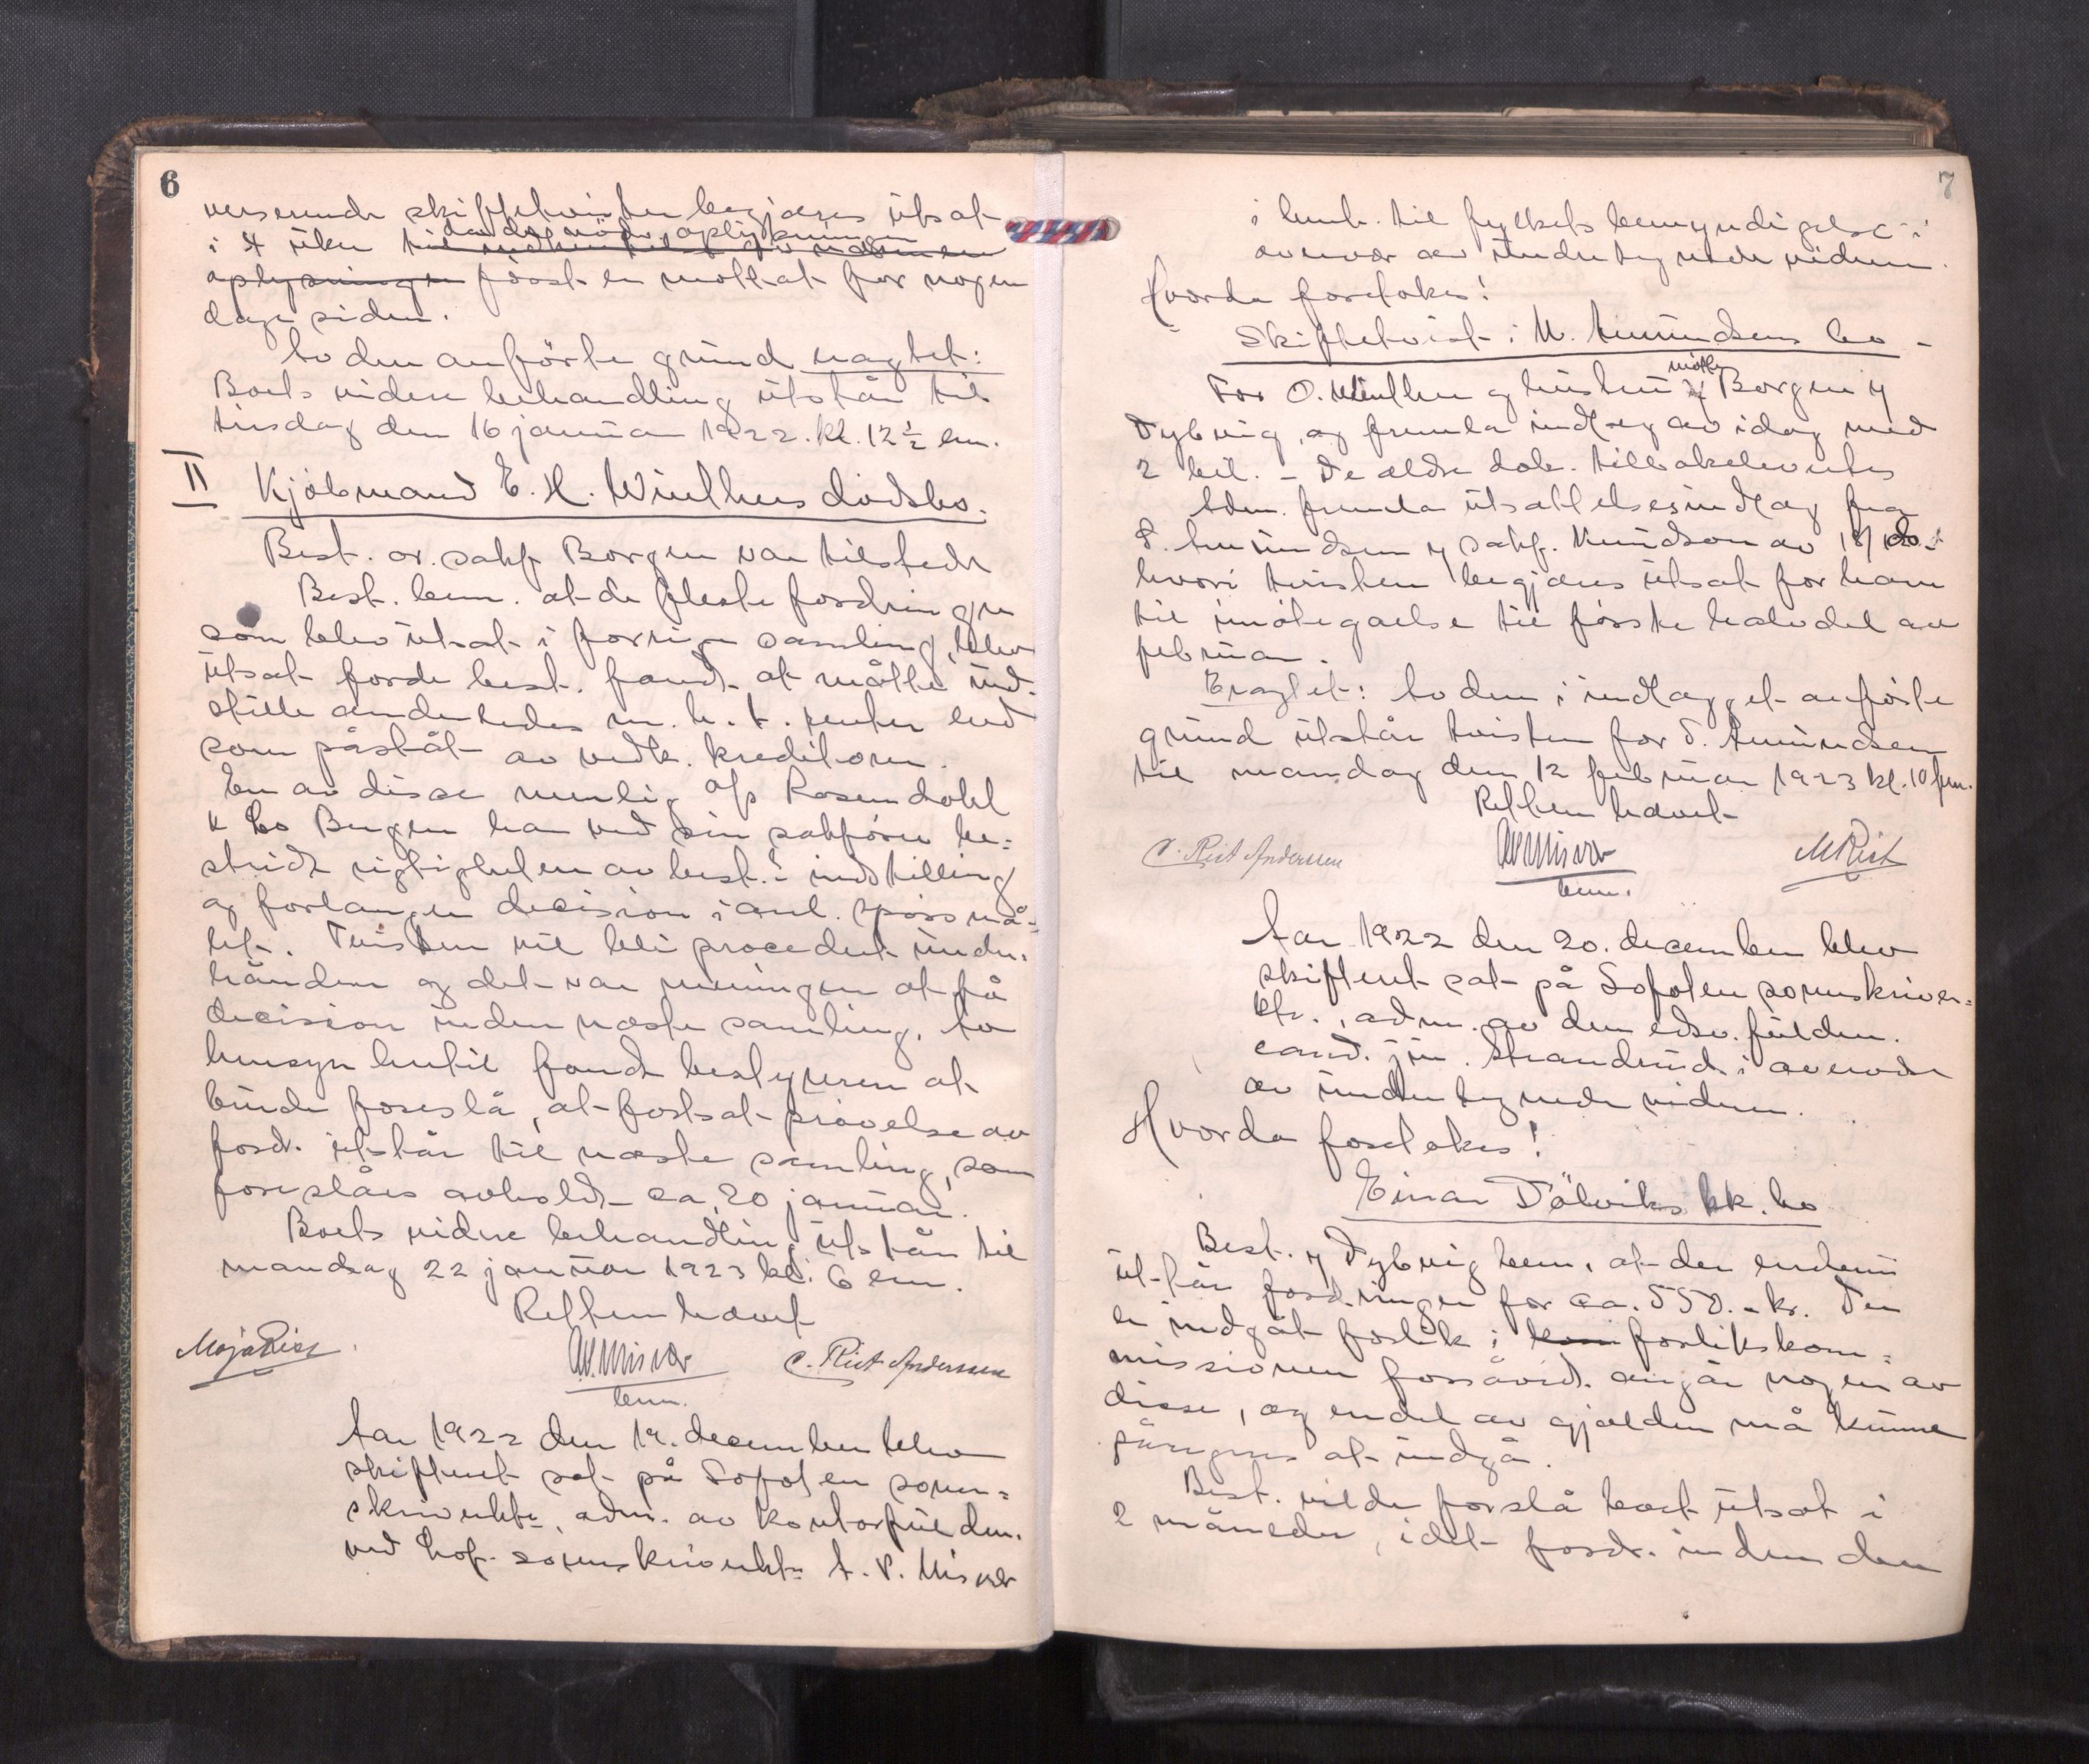 6
verserende skiftetvister begjæres utsat
da de nødv. oplysninger
i 4 uker til
oplysninger først er mottat for nogen
dage siden.
Av den anførte grund eragtet:
Boets videre behandling utstår til
tirsdag den 16 januar 1922. kl. 12 1/2 em.
II Kjøbmand E. H. Winthers dødsbo.
Best. or. sakf Borgen var tilstede
Best. bem. at de fleste fordringer
som blev utsat i forrige samling, blev
utsat fordi best. fandt at måtte ind-
stille anderledes m. h. t. renter end
som påståt av vedk. kreditorer.
En av disse nemlig A/s Rosendahl
& Co Bergen har ved sin sakfører be-
stridt rigtigheten av best.s indstilling
og forlanger decision i anl. spørsmå-
let. Tvisten vil bli procedert under-
hånden og det var meningen at få
decision inden næste samling. Av
hensyn hertil fandt bestyreren at
burde foreslå, at fortsat prøvelse av
ford. utstår til næste samling, som
foreslåes avholdt ca. 20 januar.
Boets videre behandling utstår til
mandag 22 januar 1923 kl. 6 em.
Retten hævet
Maja Rist A.P. Misvær C. Rist Anderssen
bem.
Aar 1922 den 19. december blev
skifteret sat på Lofoten soren-
skriverkt., adm. av kontorfuldm.
ved Lof. sorenskriverkt. A. P. Misvær
7
i henh. til fylkets bemyndigelse i
overvær av undertegnede vidner.
Hvorda foretokes!
Skiftetvist i M. Amundsens bo -
møtte
For O. Winther og hustru Borgen v
Dybvig, og fremla indlæg av idag med
2 bil. - De ældre dok. tilbakelevertes
Adm. fremla utsættelsesindlæg fra
S. Amundsen v sakf. Knudson av 18/ ds.
hvori tvisten begjæres utsat for ham
til imøtegaaelse til første halvdel av
februar.
Eragtet: Av den i indlægget anførte
grund utstår tvisten for S. Amundsen
til mandag den 12 februar 1923 kl. 10 fm.
Retten hævet
C. Rist Anderssen A.P. Misvær M Rist
bem.
Aar 1922 den 20. december blev
skifteret sat på Lofoten sorenskriver-
ktr., adm. av den edsv. fuldm.
cand. jur. Strandrud i overvær
av undertegnede vidner.
Hvorda foretokes!
Einar Tølviks kk. bo
Best. v Dybvig bem. at der endnu
utstår fordringer for ca. 550.- kr. Der
er indgåt forlik i kom forlikskom-
missionen forsåvidt angår nogen av
disse, og en del av gjælden må kunne
påregnes at indgå.
Best. vilde forslå boet utsat i
2 måneder, idet fordr. inden den